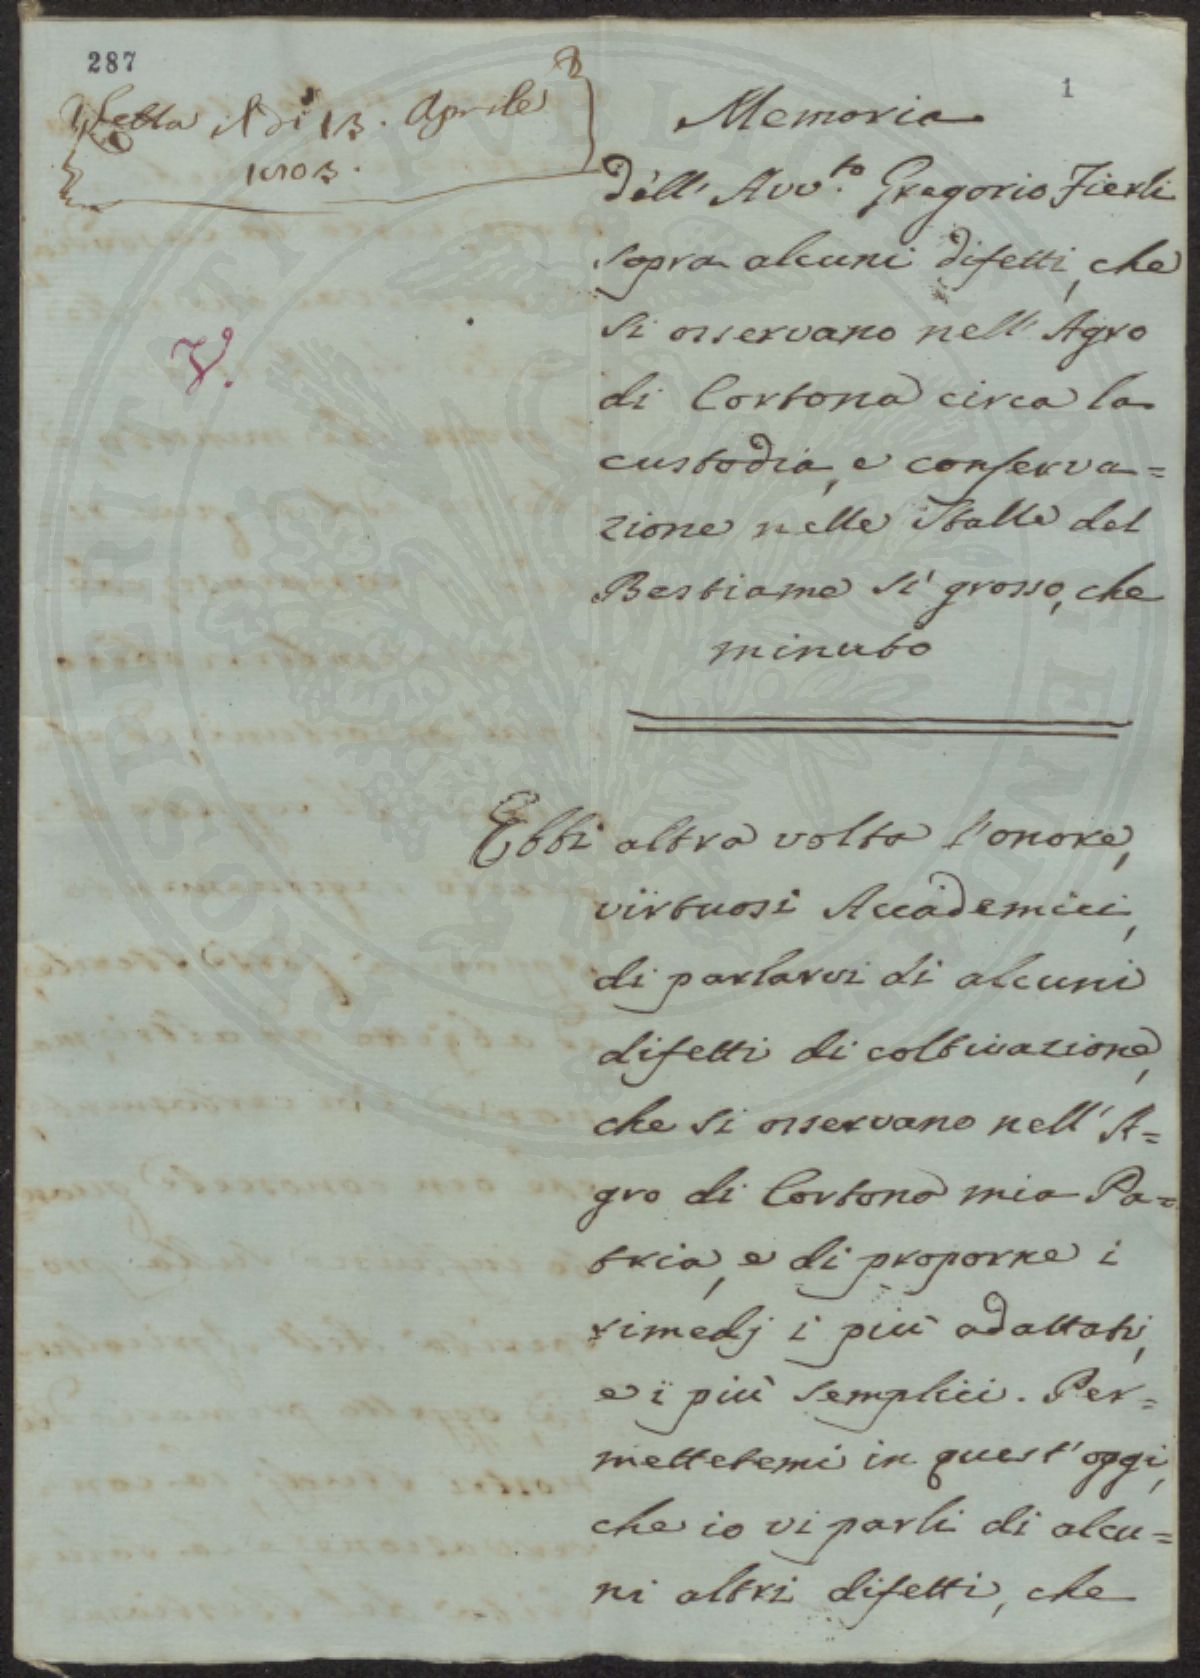 287
1
Letta A dì 13. Aprile
1803.
V.
Memoria
dell' Avv.to Gregorio Fierli
sopra alcuni difetti, che
si osservano nell' Agro
di Cortona circa la
custodia, e conserva=
zione nelle Stalle del
Bestiame sì grosso, che
minuto
Ebbi altra volta l'onore,
virtuosi Accademici,
di parlarvi di alcuni
difetti di coltivazione,
che si osservano nell' A=
gro di Cortona mia Pa=
tria, e di proporne i
rimedj i più adattati,
e i più semplici. Per=
mettetemi in quest'oggi,
che io vi parli di alcu=
ni altri difetti, che
PROSPERITATI PUBLICAE AUGENDAE